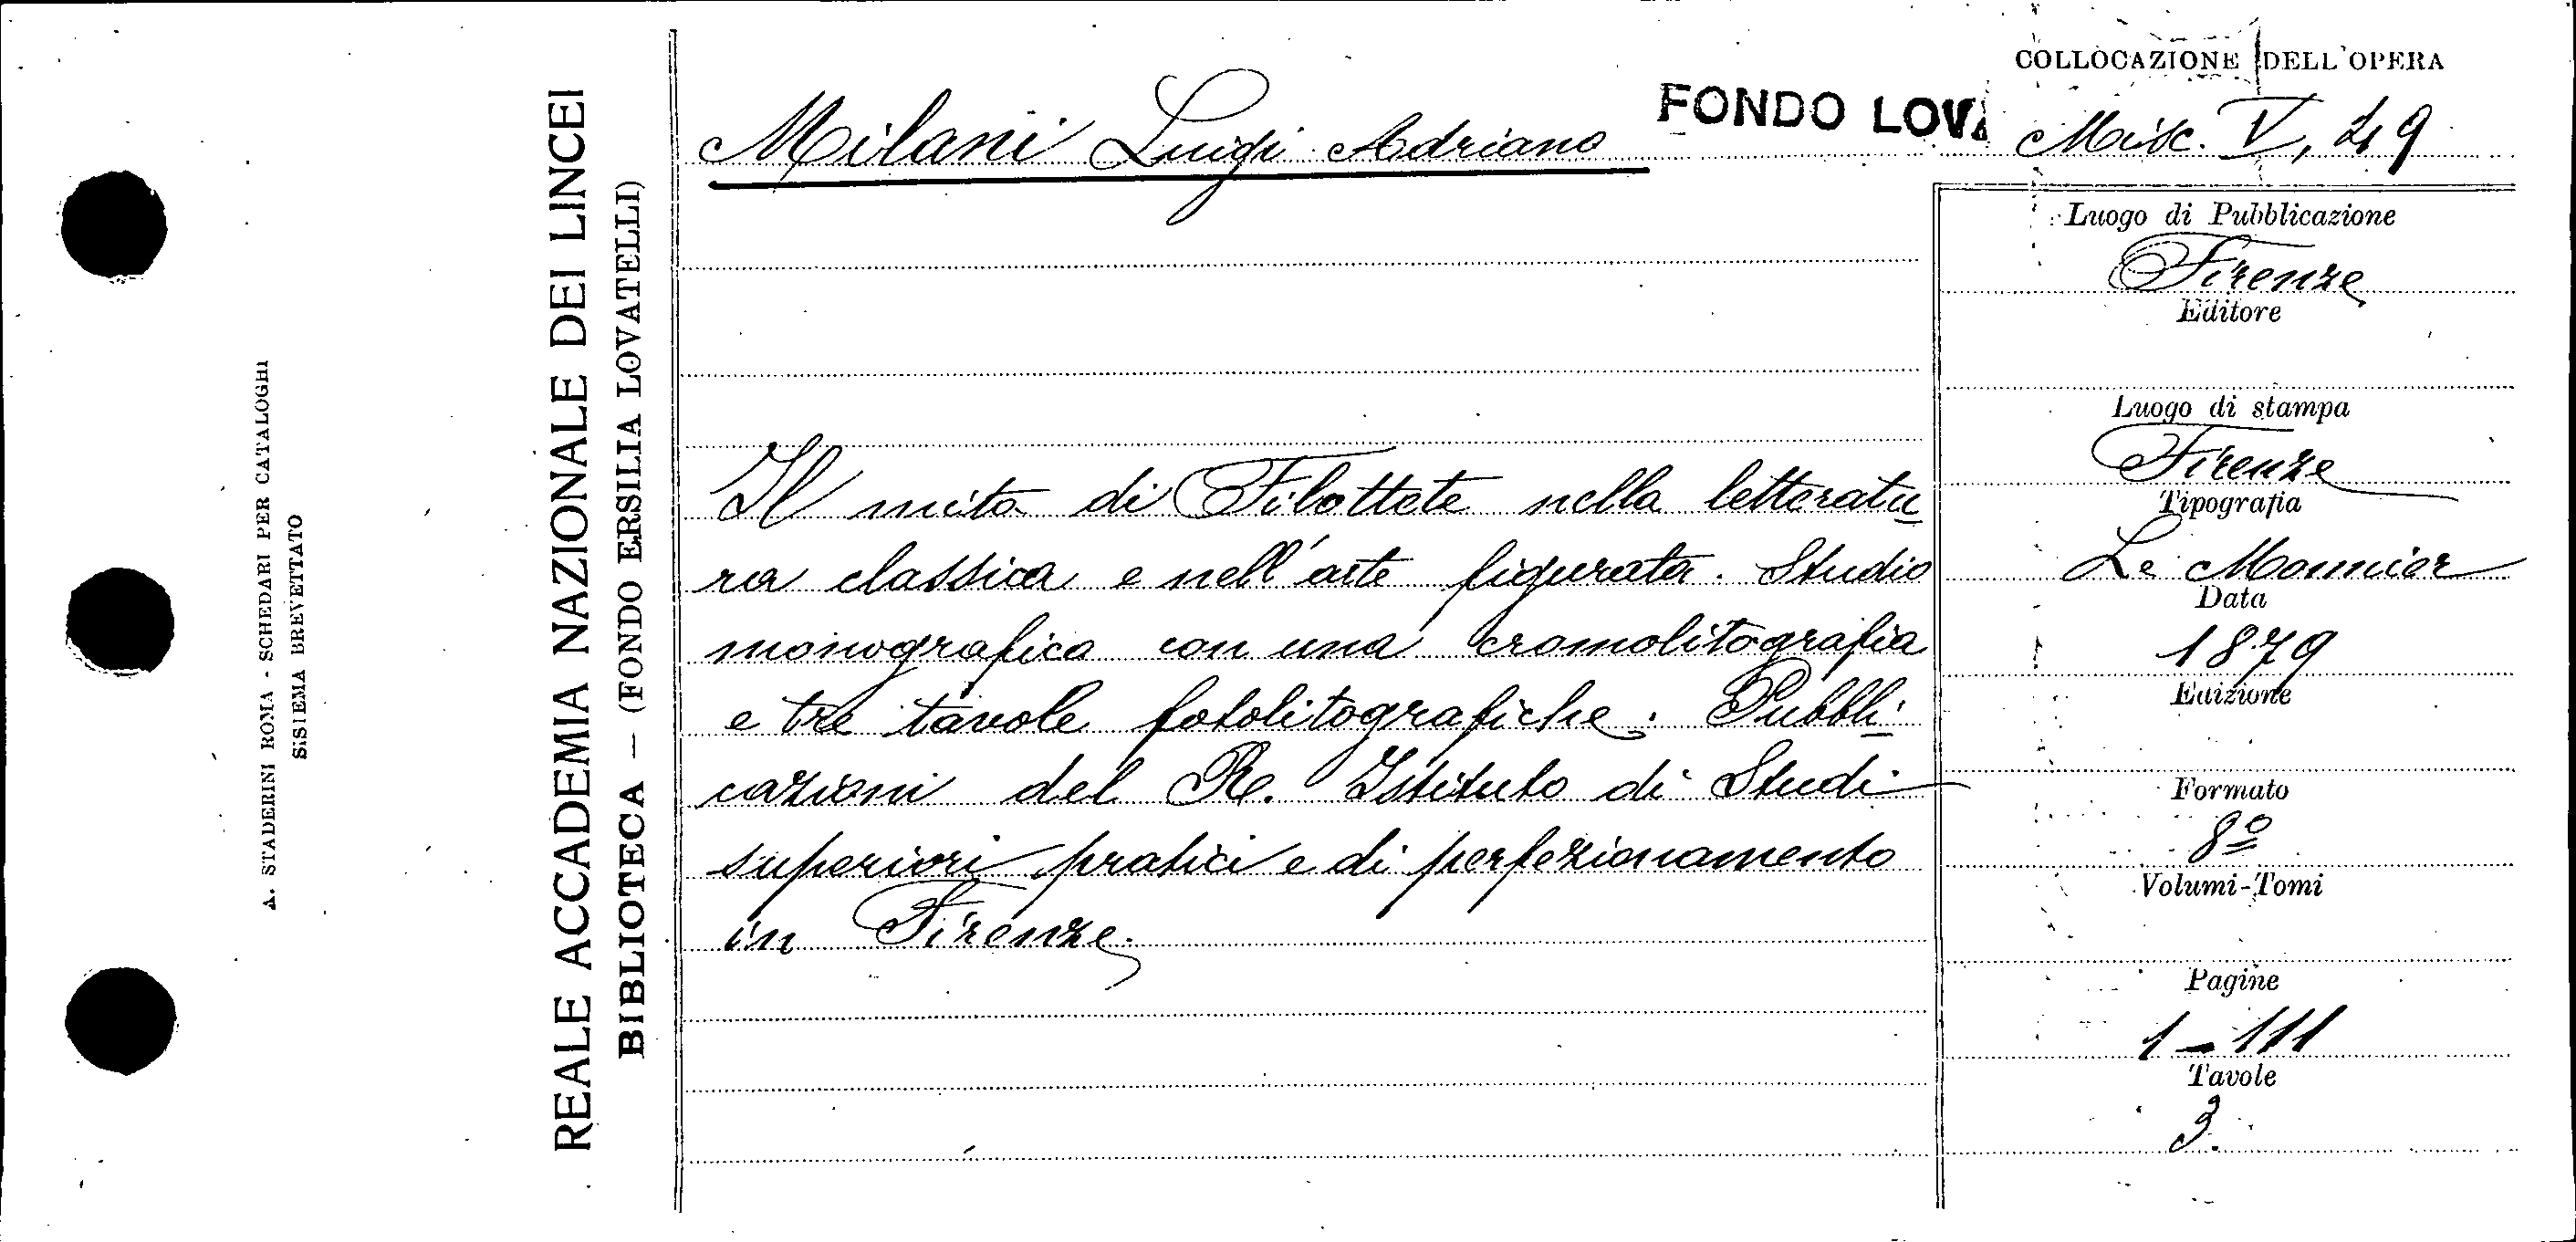 A. STADERINI ROMA - SCHEDARI PER CATALOGHI
SISTEMA BREVETTATO
REALE ACCADEMIA NAZIONALE DEI LINCEI
BIBLIOTECA — (FONDO ERSILIA LOVATELLI)
Milani Luigi Adriano
FONDO LOVA
COLLOCAZIONE DELL'OPERA
Misc. V, 49
Il mito di Filottete nella letteratu
ra classica e nell'arte figurata. Studio
monografico con una cromolitografia
e tre tavole fotolitografiche. Pubbli
cazioni del R. Istituto di Studi
superiori pratici e di perfezionamento
in Firenze.
Luogo di Pubblicazione
Firenze
Editore
Luogo di stampa
Firenze
Tipografia
Le Monnier
Data
1879
Edizione
Formato
8º
Volumi-Tomi
Pagine
1-111
Tavole
3.